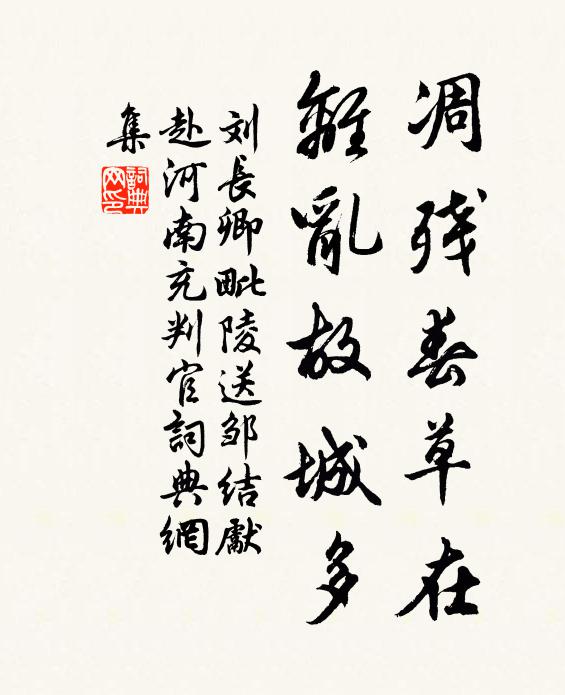 凋残春草在
離亂故城多
刘長卿毗陵送邹结獻
赴河南充判官詞典網
集
詞典
网印